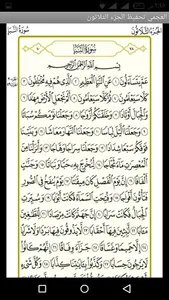 العجمي تحفيظ الجزء الثلاثون
الجزء الثلاثون
سورة النبإ
سُورَةُ النَّبَإِ
بِسْمِ اللَّهِ الرَّحْمَٰنِ الرَّحِيمِ
عَمَّ يَتَسَاءَلُونَ ١ عَنِ النَّبَإِ الْعَظِيمِ ٢ الَّذِي هُمْ فِيهِ مُخْتَلِفُونَ ٣
كَلَّا سَيَعْلَمُونَ ٤ ثُمَّ كَلَّا سَيَعْلَمُونَ ٥ أَلَمْ نَجْعَلِ الْأَرْضَ مِهَادًا ٦
وَالْجِبَالَ أَوْتَادًا ٧ وَخَلَقْنَاكُمْ أَزْوَاجًا ٨ وَجَعَلْنَا نَوْمَكُمْ سُبَاتًا ٩
وَجَعَلْنَا اللَّيْلَ لِبَاسًا ١٠ وَجَعَلْنَا النَّهَارَ مَعَاشًا ١١ وَبَنَيْنَا فَوْقَكُمْ
سَبْعًا شِدَادًا ١٢ وَجَعَلْنَا سِرَاجًا وَهَّاجًا ١٣ وَأَنْزَلْنَا مِنَ الْمُعْصِرَاتِ
مَاءً ثَجَّاجًا ١٤ لِنُخْرِجَ بِهِ حَبًّا وَنَبَاتًا ١٥ وَجَنَّاتٍ أَلْفَافًا ١٦
إِنَّ يَوْمَ الْفَصْلِ كَانَ مِيقَاتًا ١٧ يَوْمَ يُنْفَخُ فِي الصُّورِ فَتَأْتُونَ
أَفْوَاجًا ١٨ وَفُتِحَتِ السَّمَاءُ فَكَانَتْ أَبْوَابًا ١٩ وَسُيِّرَتِ الْجِبَالُ
فَكَانَتْ سَرَابًا ٢٠ إِنَّ جَهَنَّمَ كَانَتْ مِرْصَادًا ٢١ لِلطَّاغِينَ مَآبًا
٢٢ لَابِثِينَ فِيهَا أَحْقَابًا ٢٣ لَا يَذُوقُونَ فِيهَا بَرْدًا وَلَا شَرَابًا ٢٤
إِلَّا حَمِيمًا وَغَسَّاقًا ٢٥ جَزَاءً وِفَاقًا ٢٦ إِنَّهُمْ كَانُوا لَا يَرْجُونَ
حِسَابًا ٢٧ وَكَذَّبُوا بِآيَاتِنَا كِذَّابًا ٢٨ وَكُلَّ شَيْءٍ
أَحْصَيْنَاهُ كِتَابًا ٢٩ فَذُوقُوا فَلَنْ نَزِيدَكُمْ إِلَّا عَذَابًا ٣٠